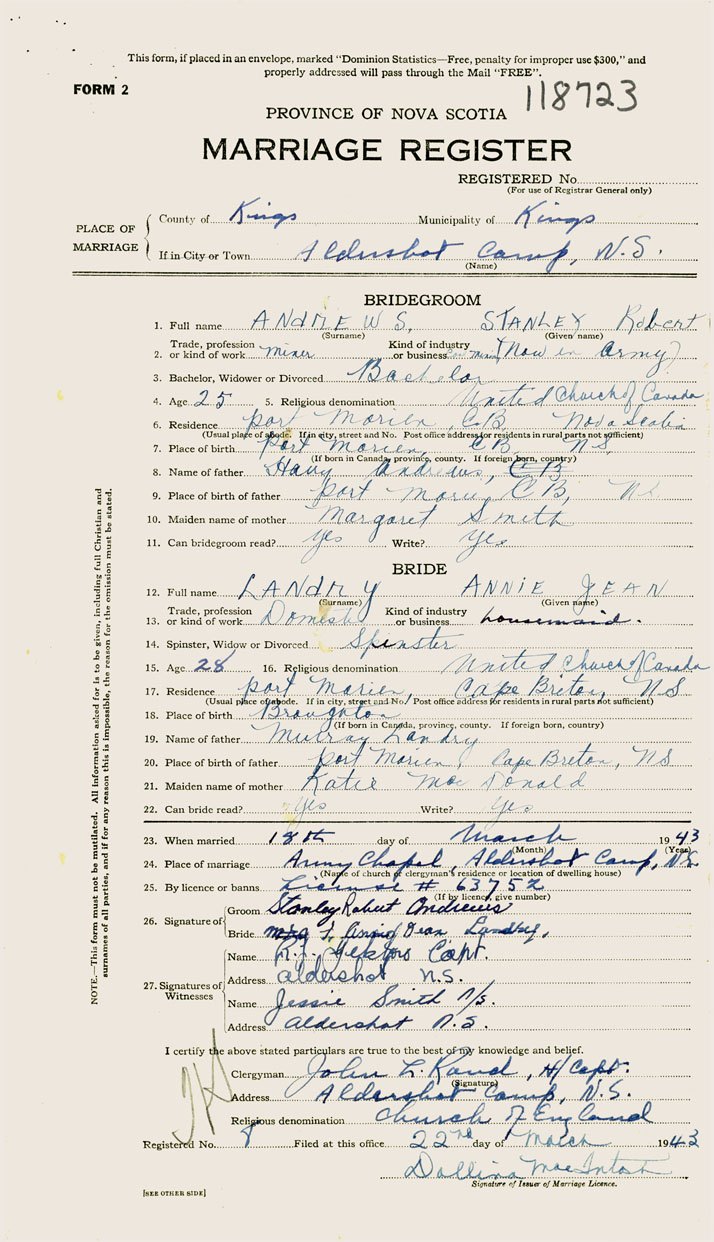 This form, if placed in an envelope, marked "Dominion Statistics—Free, penalty for improper use $300," and
properly addressed will pass through the Mail "FREE".
FORM 2
118723
PROVINCE OF NOVA SCOTIA
MARRIAGE REGISTER
REGISTERED No.
(For use of Registrar General only)
PLACE OF MARRIAGE
County of Kings Municipality of Kings
If in City or Town Aldershot Camp, N.S.
(Name)
BRIDEGROOM
1. Full name ANDREWS, STANLEY Robert
(Surname) (Given name)
2. Trade, profession or kind of work miner Kind of industry or business (Now in Army)
3. Bachelor, Widower or Divorced Bachelor
4. Age 25 5. Religious denomination United Church of Canada
6. Residence Port Morien, C.B. Nova Scotia
(Usual place of abode. If in city, street and No. Post office address for residents in rural parts not sufficient)
7. Place of birth Port Morien, C B, N S.
(If born in Canada, province, county. If foreign born, country)
8. Name of father Harry Andrews,
9. Place of birth of father Port Morien, C B, N S.
10. Maiden name of mother Margaret Smith
11. Can bridegroom read? Yes Write? Yes
BRIDE
12. Full name LANDRY ANNIE JEAN
(Surname) (Given name)
13. Trade, profession or kind of work Domestic Kind of industry or business housemaid.
14. Spinster, Widow or Divorced Spinster
15. Age 28 16. Religious denomination United Church of Canada
17. Residence Port Morien, Cape Breton, N S
(Usual place of abode. If in city, street and No. Post office address for residents in rural parts not sufficient)
18. Place of birth Broughton
(If born in Canada, province, county. If foreign born, country)
19. Name of father Murray Landry
20. Place of birth of father Port Morien, Cape Breton, N S
21. Maiden name of mother Katie Mac Donald
22. Can bride read? Yes Write? Yes
23. When married 18th day of March 1943
(Month) (Year)
24. Place of marriage Army Chapel, Aldershot Camp, N.S.
(Name of church or clergyman's residence or location of dwelling house)
25. By licence or banns License # 63752
(If by licence, give number)
26. Signature of Groom Stanley Robert Andrews
Bride Annie Jean Landry,
27. Signatures of Witnesses
Name Capt.
Address Aldershot N.S.
Name Jessie Smith N/s.
Address Aldershot N.S.
I certify the above stated particulars are true to the best of my knowledge and belief.
Clergyman John L. Rand, H/Capt.
(Signature)
Address Aldershot Camp, N.S.
Religious denomination Church of England
Registered No. 8 Filed at this office 22nd day of March 1943
MacIntosh
Signature of Issuer of Marriage Licence.
[SEE OTHER SIDE]
NOTE.—This form must not be mutilated. All information asked for is to be given, including full Christian and
surnames of all parties, and if for any reason this is impossible, the reason for the omission must be stated.